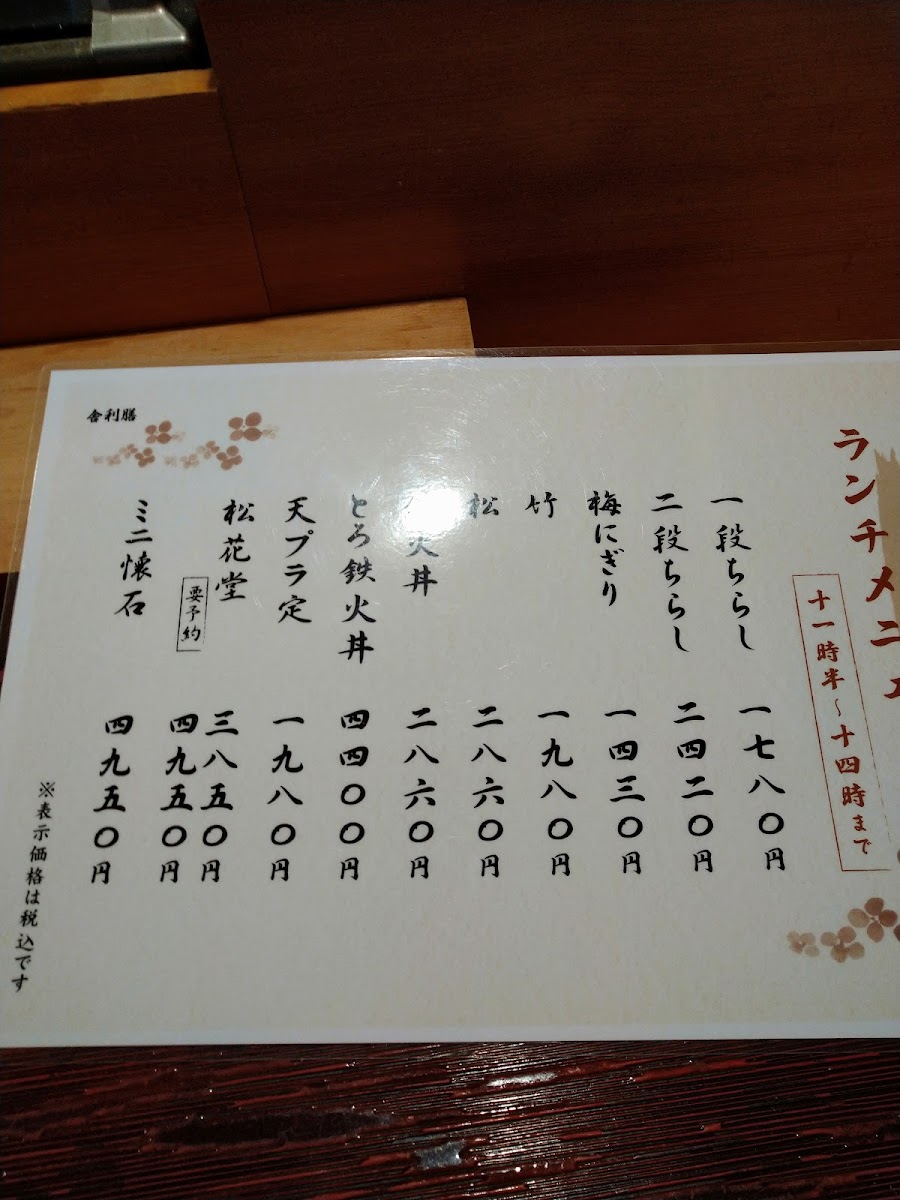 ランチメニュ
十一時半～十四時まで
一段ちらし 一七八〇円
二段ちらし 二四二〇円
梅にぎり 一四三〇円
竹 一九八〇円
松 二八六〇円
火丼 二八六〇円
とろ鉄火丼 四四〇〇円
天プラ定 一九八〇円
松花堂 三八五〇円
要予約 四九五〇円
ミニ懐石 四九五〇円
※表示価格は税込です
舎利膳